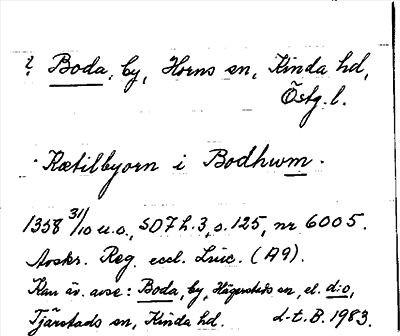 ? Boda, by, Horns sn, Kinda hd,
Östg. l.
Kætilbyorn i Bodhwm.
1358 31/10 u.o., SD 7 h. 3, s. 125, nr 6005.
Avskr. Reg. eccl. Linc. (A9).
Kan äv. avse: Boda, by, Hägerstads sn, el. d:o,
Tjärstads sn, Kinda hd. d-t. B. 1983.